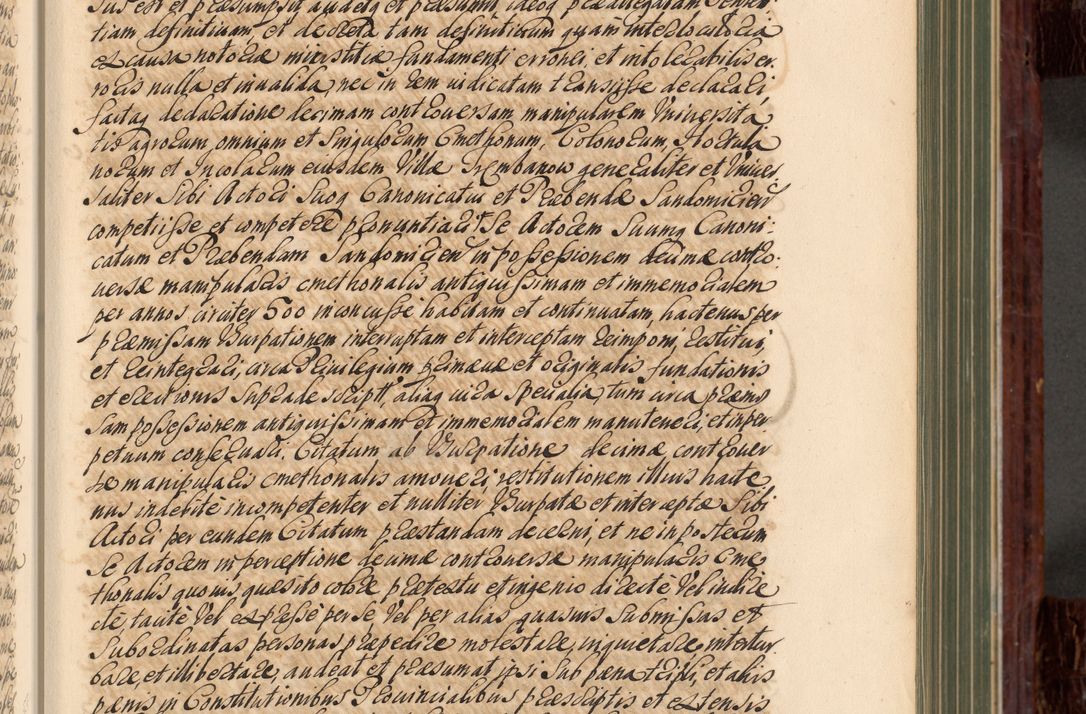 Jus est et præsumpsit audetq et præsumit, ideoq præallegatam Senten-
tiam definitiuam, et decreta tam definitiuum quam interlocutoria
ex causa notoriæ iniustitiæ fundamenti erronei, et intolerabilis er,
roris nulla et inualida, nec in rem iudicatam transiisse declarari
factaq declaratione decimam controuersam manipularem Vniuersita
tis agrorum omnium et Singulorum Cmethonum, Colonorum, Hortula
norum et Incolarum eiusdem Villæ generaliter et Vniuer
saliter Sibi Actori Suoq Canonicatui et Præbendæ Sandomirien
competiisse et competere pronuntiari Se Actorem Suumq Canoni-
catum et Præbendam Sandomirien in possessionem decimæ contro-
uersæ manipularis cmethonalis antiquissimam et immemorialem
per annos circiter 500 inconcusse habitam et continuatam, hactenus per
præmissam Vsurpationem interruptam et interceptam reimponi, restitui,
et reintegrari, circa Priuilegium primæuæ et originalis fundationis
et erectionis supradescript, aliaq iura specialia, tum circa præmis
sam possessionem antiquissimam et immemorialem manuteneri, et in per
petuum conseruari. Citatum ab Vsurpatione decimæ controuer
sæ manipularis cmethonalis amoueri, restitutionem illius hacte
nus indebite incompetenter et nulliter Vsurpatæ et interceptæ Sibi
Actori per eundem Citatum præstandam decerni, et ne in posterum
Se Actorem in perceptione decimæ controuersæ manipularis Cme
thonalis quouis quæsito colore prætextu et ingenio directe Vel indire
cte tacite Vel expresse per se, Vel per alias quasuis Submissas et
Subordinatas personas præpedire molestare, inquietare, intertur
bare, et illibertare, audeat et præsumat ipsi Sub pœna tripli, et aliis
pœnis in Constitutionibus Prouincialibus præscriptis et extensis